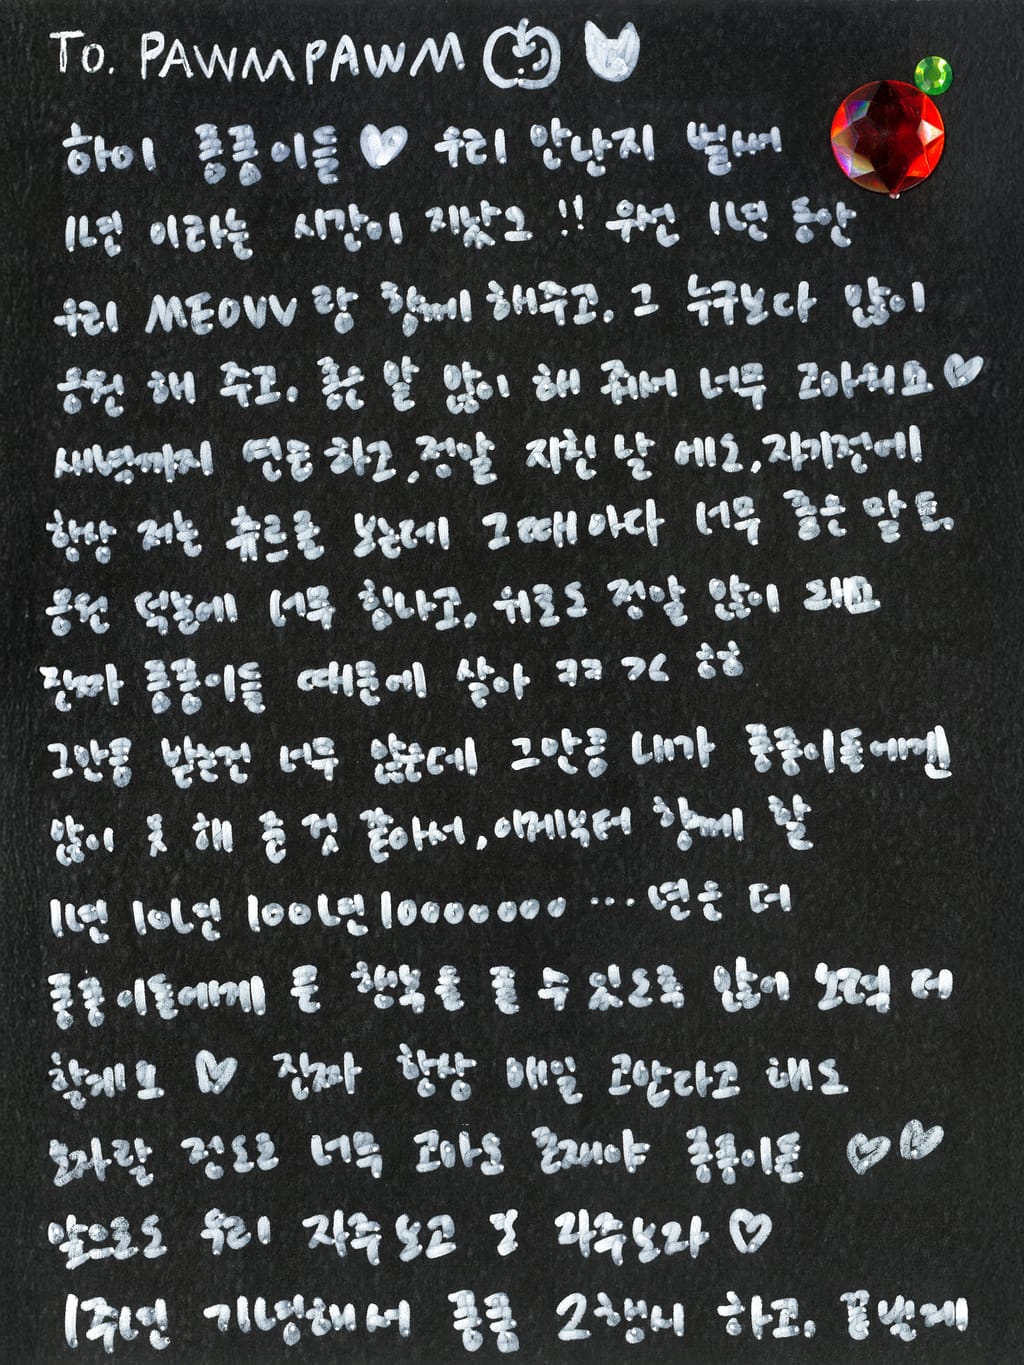 To. PAWMPAWM
하이 퐁퐁이들 우리 만난지 벌써
1년 이라는 시간이 지났고 !! 우선 1년 동안
우리 MEOVV 랑 함께 해주고, 그 누구보다 많이
응원 해 주고, 좋은 말 많이 해 줘서 너무 고마워요
새벽까지 연습하고, 정말 지친 날 에도, 자기전에
항상 저는 퓨르를 보는데 그때마다 너무 좋은 말들,
응원 덕분에 너무 힘나고, 위로도 정말 많이 되고
진짜 퐁퐁이들 때문에 살아 ㅋㅋ ㄱㄴ ㅎㅎ
그만큼 받는건 너무 많은데 그만큼 내가 퐁퐁이들에겐
많이 못 해 준 것 같아서, 이제부터 함께 할
1년 10년 100년 10000000 ... 년은 더
퐁퐁이들에게 큰 행복을 줄 수 있도록 많이 노력 더
할게요 진짜 항상 매일 고맙다고 해도
모자랄 정도로 너무 고마운 존재야 퐁퐁이들
앞으로도 우리 자주보고 또 자주보자
1주년 기념해서 퐁퐁 2행시 하고, 끝낼게